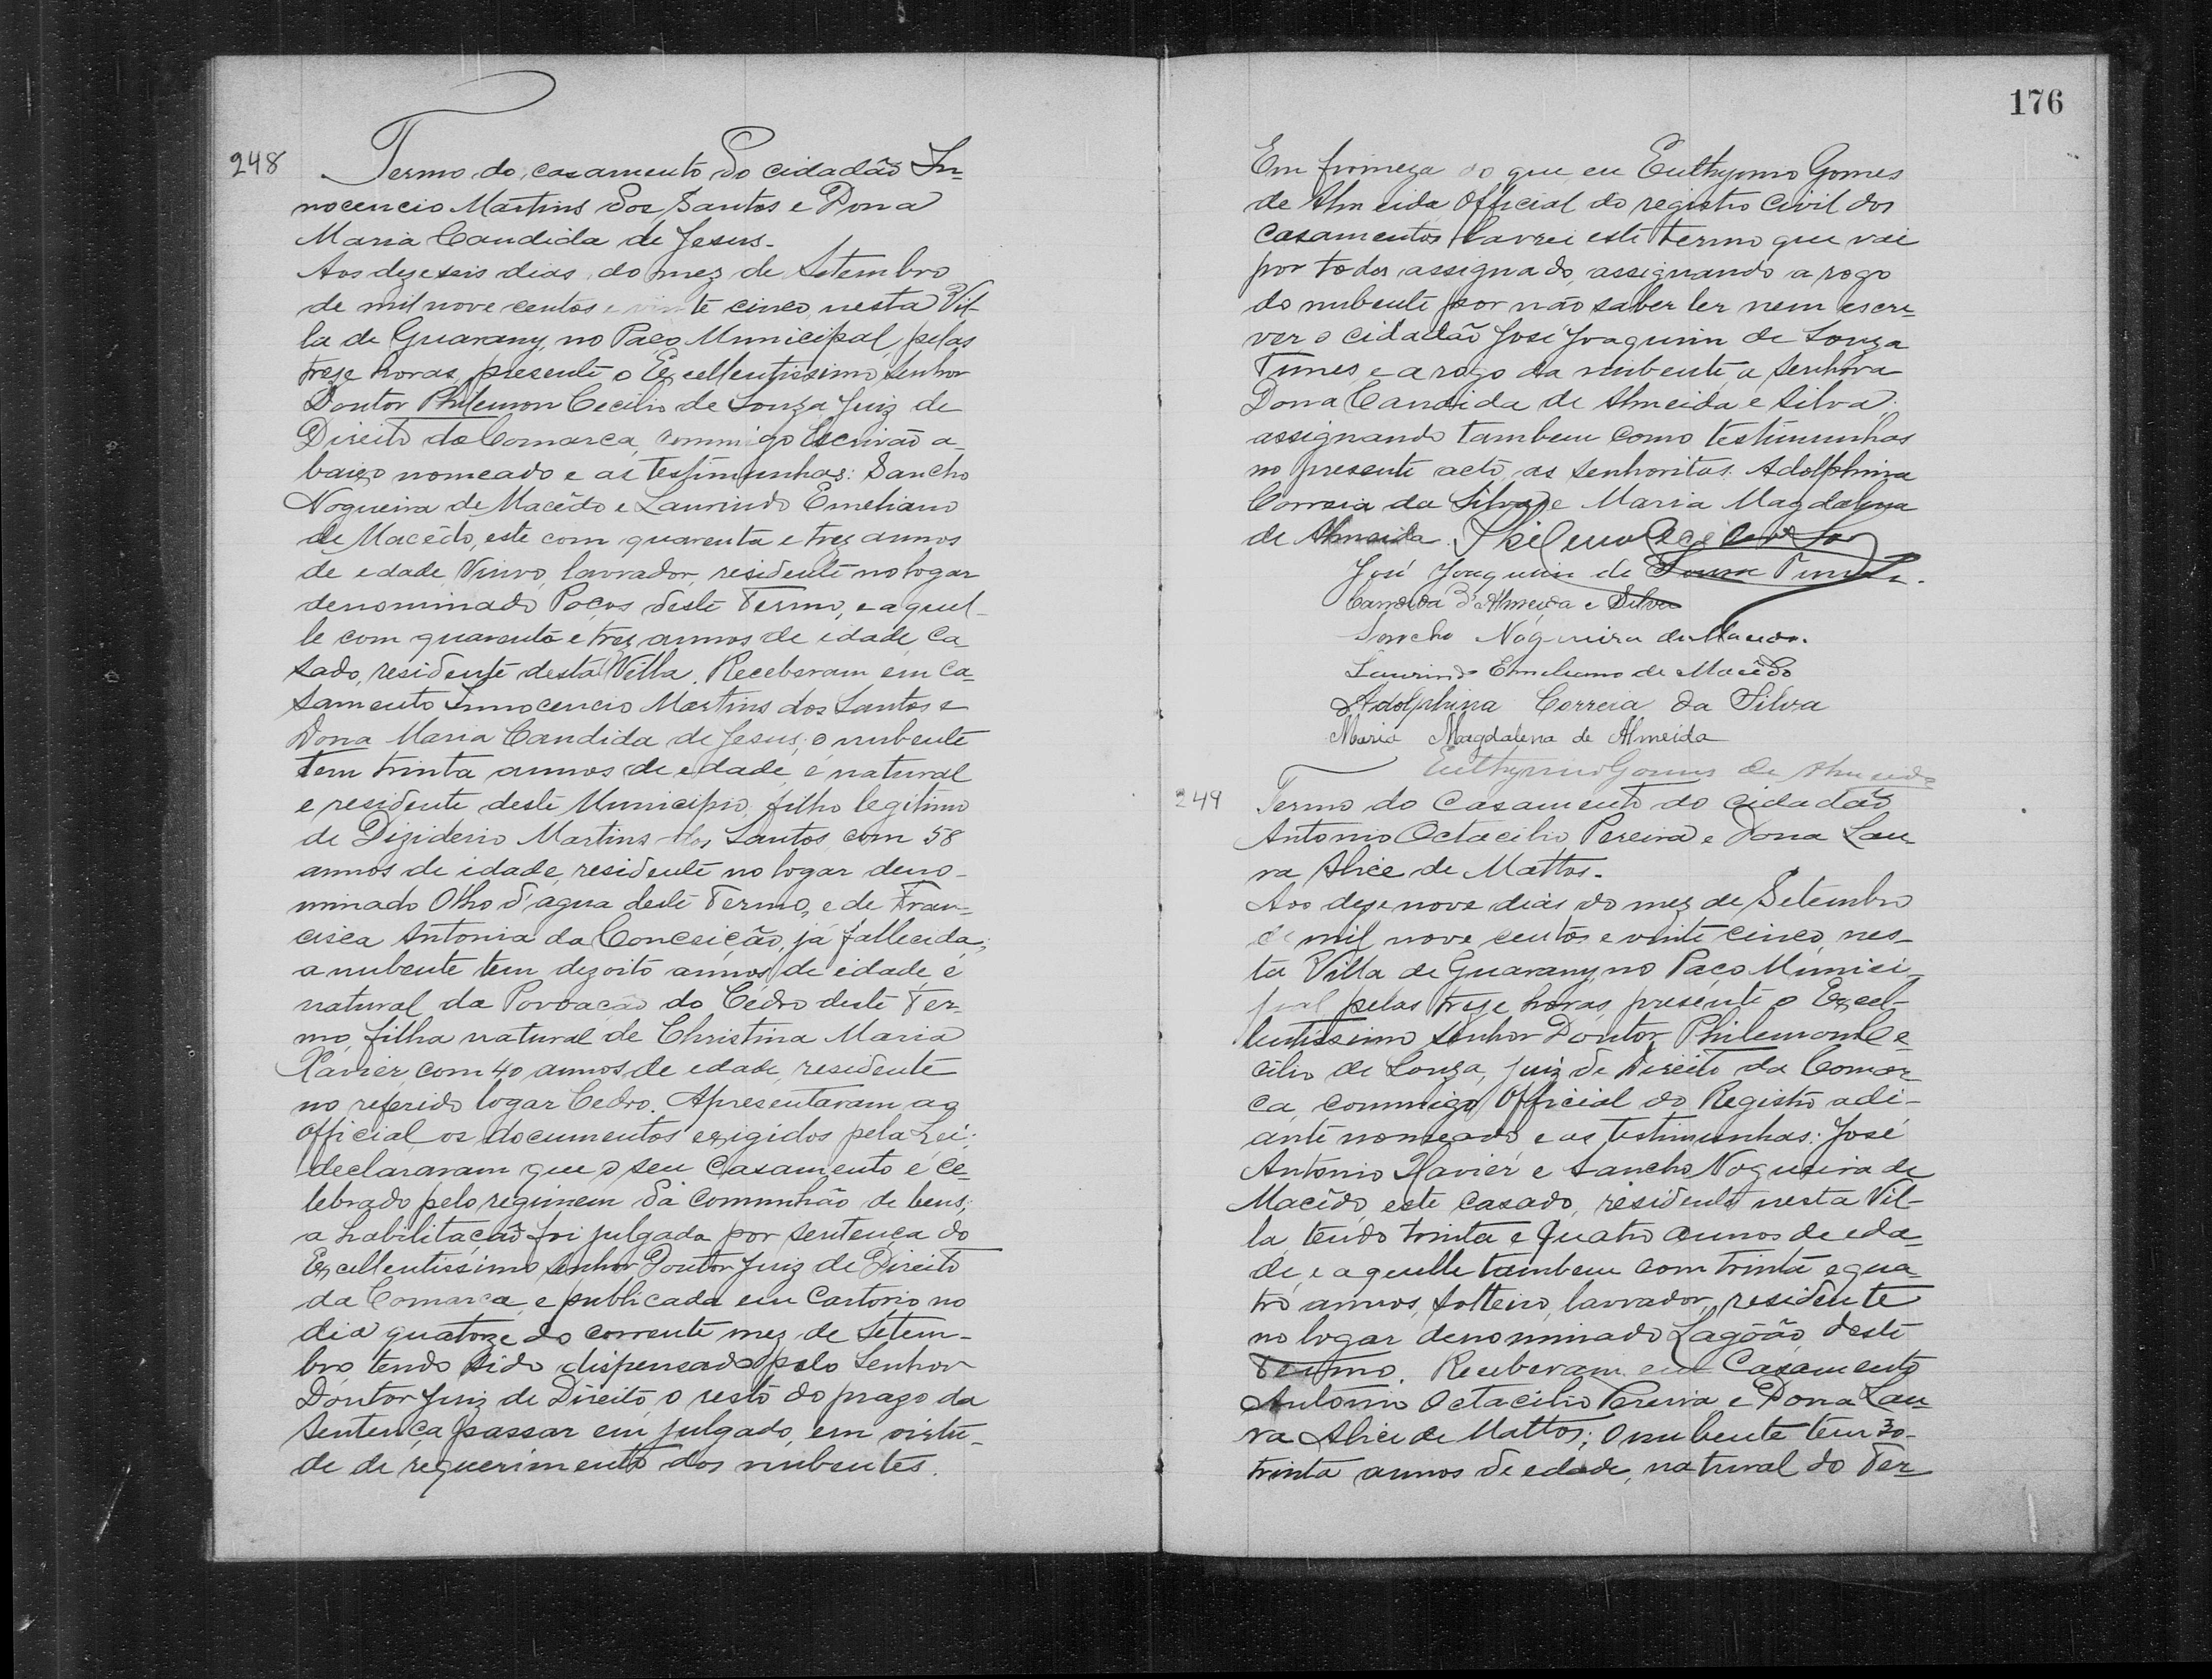 248
Termo do casamento do cidadão In-
nocencio Martins dos Santos e Dona
Maria Candida de Jesus.
Aos dezeseis dias do mez de Setembro
de mil nove centos e vinte cinco, nesta Vil-
la de Guarany, no Paço Municipal, pelas
treze horas, presente o Excellentissimo Senhor
Doutor Philemon Cecilio de Souza Juiz de
Direito da Comarca, commigo Escrivão a-
baixo nomeado e as testimunhas: Sancho
Nogueira de Macêdo e Laurindo Emeliano
de Macêdo, este com quarenta e trez annos
de edade, Viuvo, lavrador, residente no logar
denominado Poços deste Termo, e aquel-
le com quarenta e trez annos de idade, ca-
sado, residente desta Villa. Receberam em ca-
samento Innocencio Martins dos Santos e
Dona Maria Candida de Jesus; o nubente
tem trinta annos de edade, é natural
e residente deste Municipio, filho legitimo
de Diziderio Martins dos Santos, com 58
annos de idade, residente no logar deno-
minado Olho d'agua deste Termo, e de Fran-
cisca Antonia da Conceição, já fallecida;
a nubente tem dezoito annos de idade, é
natural da Povoação do Cédro deste Ter-
mo, filha natural de Christina Maria
Xavier, com 40 annos de edade, residente
no referido logar Cedro. Apresentaram ao
official os documentos exigidos pela Lei;
declararam que o seu casamento é ce-
lebrado pelo regimem da communhão de bens;
a habilitação foi julgada por sentença do
Excellentissimo Senhor Doutor Juiz de Direito
da Comarca, e publicada em Cartorio no
dia quatorze do corrente mez de Setem-
bro, tendo sido dispensado pelo Senhor
Doutor Juiz de Direito, o resto do prazo da
Sentença passar em julgado, em virtu-
de de requerimento dos nubentes.
176
Em firmeza do que, eu Euthymio Gomes
de Almeida Official do registro Civil dos
Casamentos, lavrei este termo que vai
por todos assignado, assignando a rogo
do nubente por não saber ler nem escre-
ver o cidadão José Joaquim de Souza
Tunes, e a rogo da nubente, a Senhora
Dona Candida de Almeida e Silva;
assignando tambem como testimunhas
no presente acto, as senhoritas: Adolphina
Correia da Silva, e Maria Magdalena
de Almeida.
José Joaquim de Souza
Candida d'Almeida e Silva
Sancho Nogueira de Macedo.
Laurindo Emeliano de Macêdo
Adolphina Correia da Silva
Maria Magdalena de Almeida
Euthymio Gomes de Almeida
249
Termo do Casamento do cidadão
Antonio Octacilio Pereira e Dona Lau-
ra Alice de Mattos.
Aos dezenove dias do mez de Setembro
de mil nove centos e vinte cinco, nes-
ta Villa de Guarany, no Paço Munici-
pal pelas treze horas, presente o Excel-
lentissimo Senhor Doutor Philemon Ce-
cilio de Souza, Juiz de Direito da Comar-
ca, commigo Official do Registro adi-
ante nomeado e as testimunhas: José
Antonio Xavier e Sancho Nogueira de
Macêdo, este casado, residente nesta Vil-
la, tendo trinta e quatro annos de eda-
de, e aquelle tambem com trinta e qua-
tro annos, solteiro, lavrador, residente
no logar denominado Lagôão, deste
Termo. Receberam em Casamento
Antonio Octacilio Pereira e Dona Lau-
ra Alice de Mattos; o nubente tem 30-
trinta annos de edade, natural do Ter-